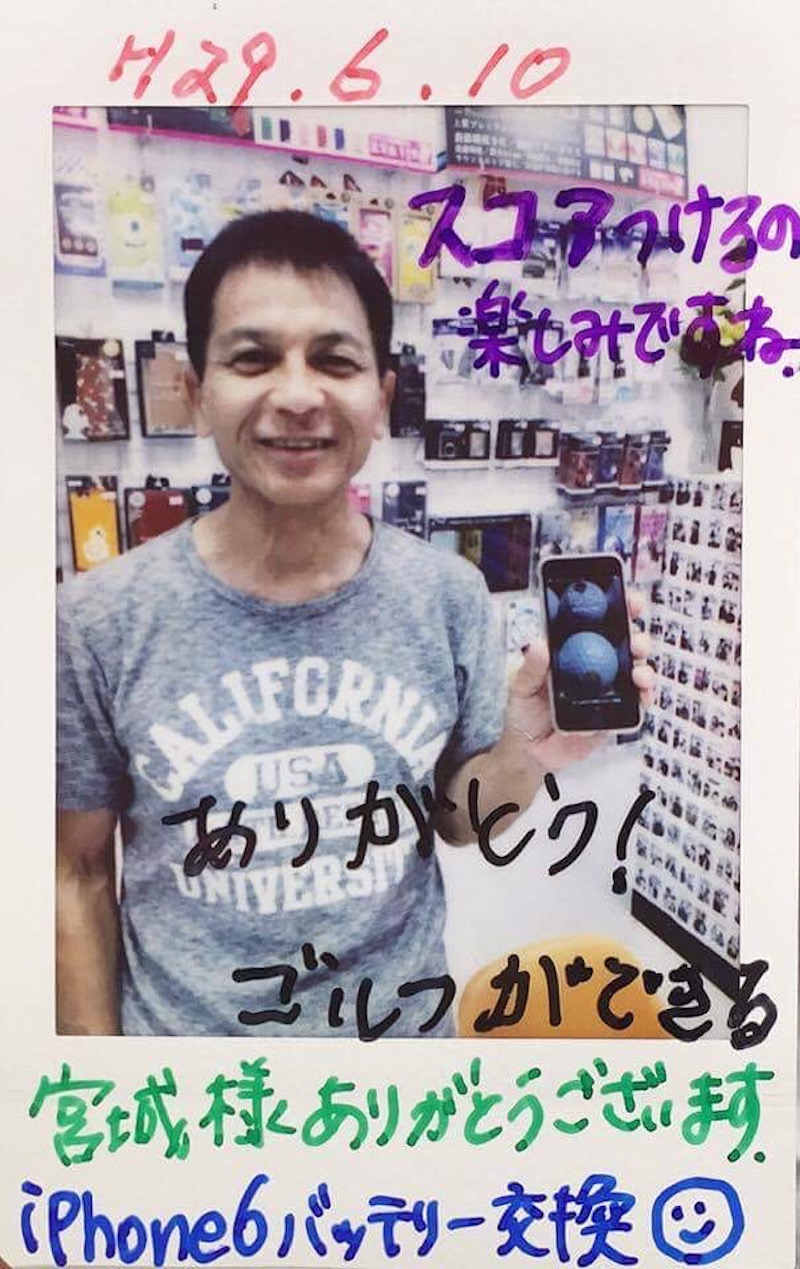 H29.6.10
スコアつけるの
楽しみですね.
CALIFORNIA
USA
UNIVERSITY
ありがとう!
ゴルフができる
宮城様くありがとうございます.
iPhone6バッテリー交換